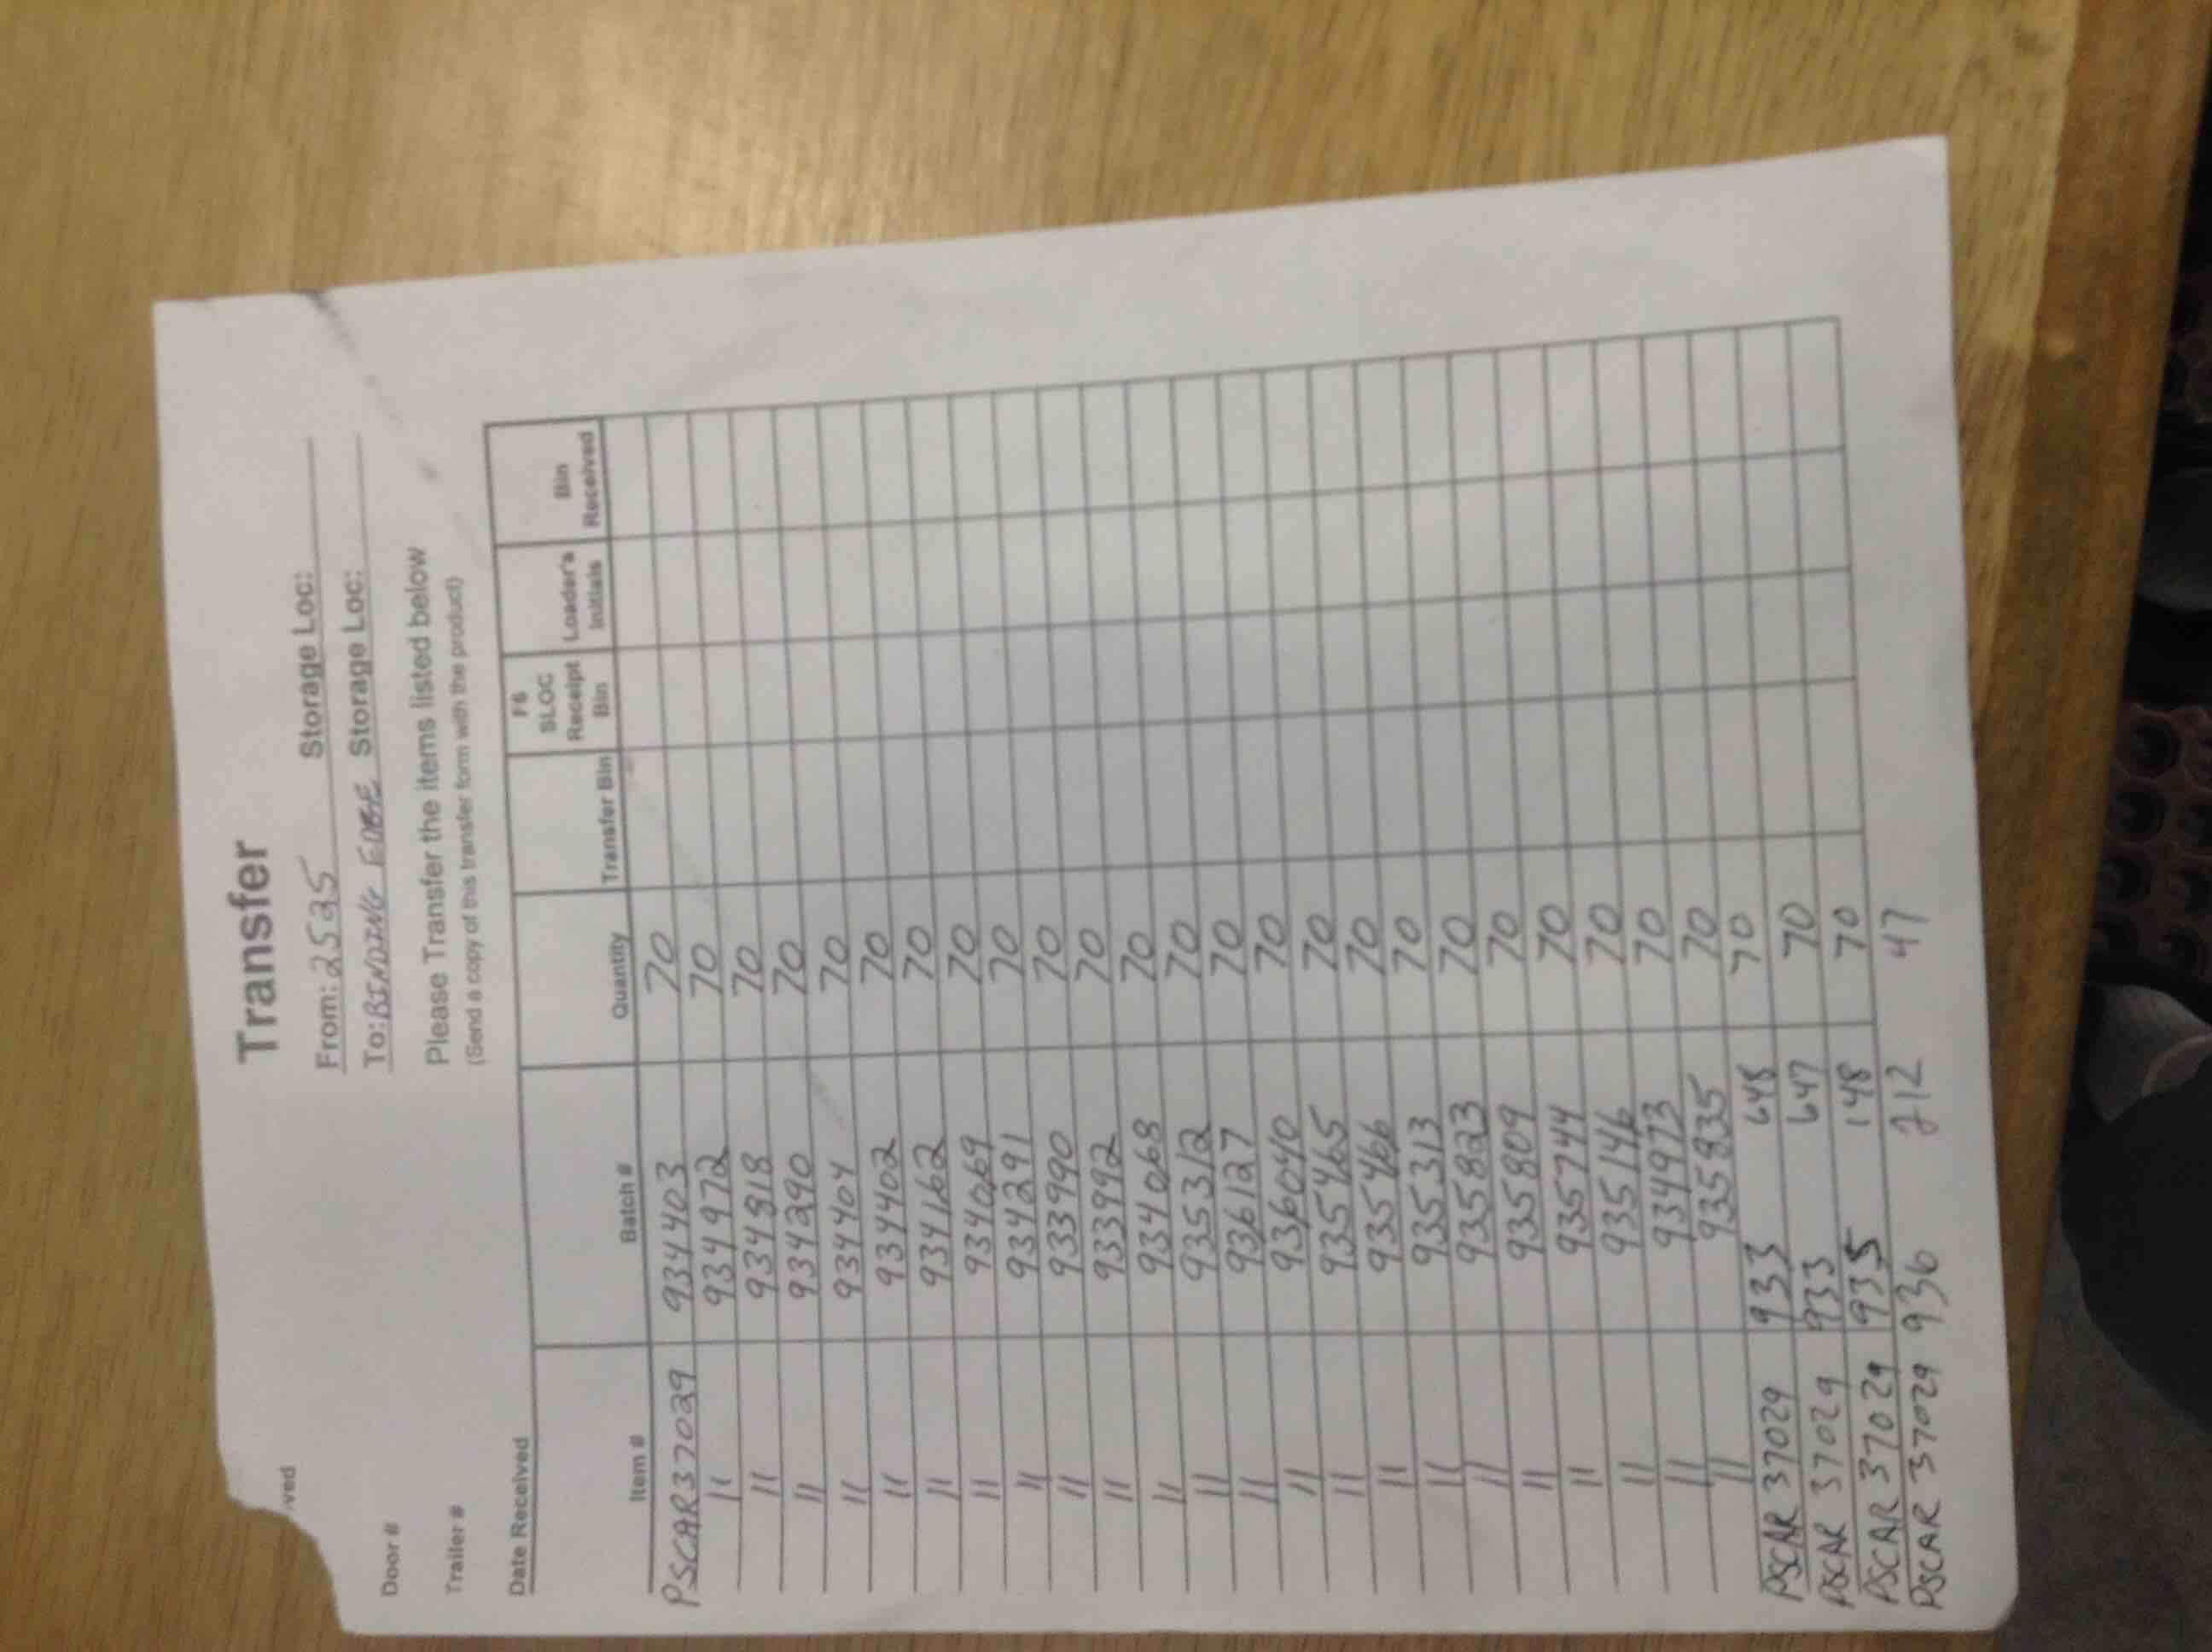 Transfer
ved
From: 25235 Storage Loc:
Door #
To: BENDING EDGE Storage Loc:
Trailer #
Please Transfer the items listed below
(Send a copy of this transfer form with the product)
Date Received
Item # Batch # Quantity Transfer Bin F6 SLOC Receipt Bin Loader's Initials Bin Received
PSCAR37029 9344403 70
11 9349972 70
11 9349818 70
11 9344290 70
11 9344404 70
11 9344402 70
11 9344162 70
11 9344069 70
11 9344291 70
11 9333990 70
11 9333992 70
11 9344068 70
11 9355312 70
11 9366127 70
11 9366040 70
11 9355465 70
11 9355466 70
11 9355313 70
11 9355823 70
11 9355809 70
11 9355744 70
11 9355146 70
11 9349973 70
11 9355935 70
PSCAR 37029 933 648 70
PSCAR 37029 933 647 70
PSCAR 37029 935 148 70
PSCAR 37029 936 212 47